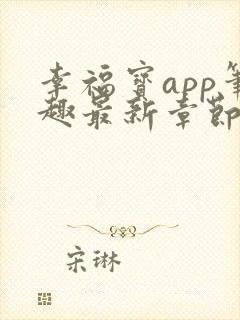 幸福宝app笔
趣最新章节
宋琳